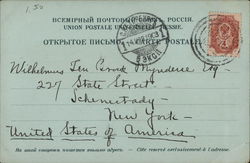 1,50
ВСЕМІРНЫЙ ПОЧТОВЫЙ СОЮЗЪ. РОССІЯ.
UNION POSTALE UNIVERSELLE. RUSSIE.
ОТКРЫТОЕ ПИСЬМО. CARTE POSTALE.
Wilhelmus Ten Broeck Mynderse Esq
227 State Street
Schenectady
New York
United States of America
На этой сторонѣ пишется только адресъ. — Côté réservé exclusivement à l'adresse.